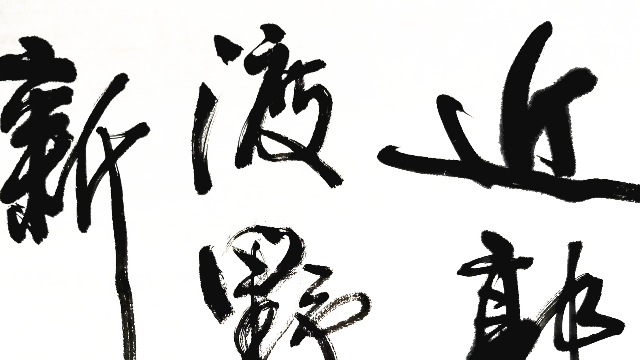 近郭
渡野
新